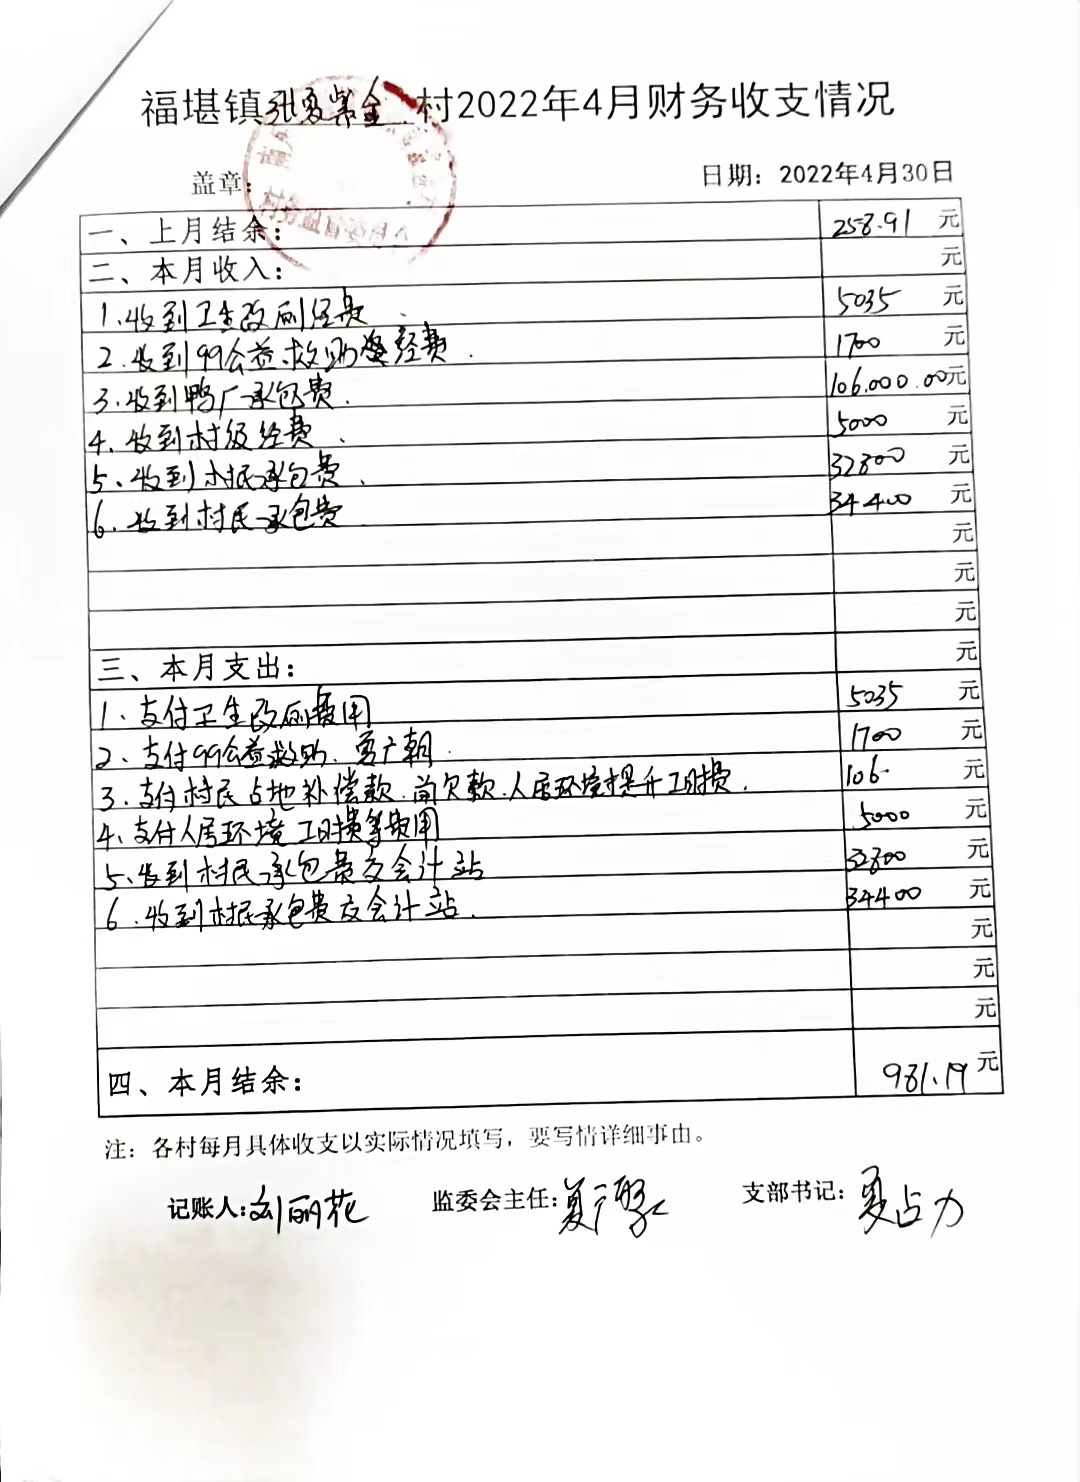 福堪镇张夏紫金村2022年4月财务收支情况
盖章:
日期: 2022年4月30日
一、上月结余: 258.91 元
二、本月收入: 元
1.收到卫生改厕经费. 5035 元
2.收到99公益救助经费. 1700 元
3.收到鸭厂承包费. 106.000.00元
4.收到村级经费. 5000 元
5.收到村民承包费. 32800 元
6.收到村民承包费 34400 元
元
元
元
三、本月支出: 元
1.支付卫生改厕费用 5035 元
2.支付99公益救助. 广朝. 1700 元
3.支付村民占地补偿款.前欠款.人居环境提升工时费. 106. 元
4.支付人居环境工时费等费用 5000 元
5.收到村民承包费交会计站 32800 元
6.收到村民承包费交会计站. 34400 元
元
元
元
四、本月结余: 981.19 元
注: 各村每月具体收支以实际情况填写，要写情详细事由。
记账人:刘丽花 监委会主任:夏广 支部书记:夏占力